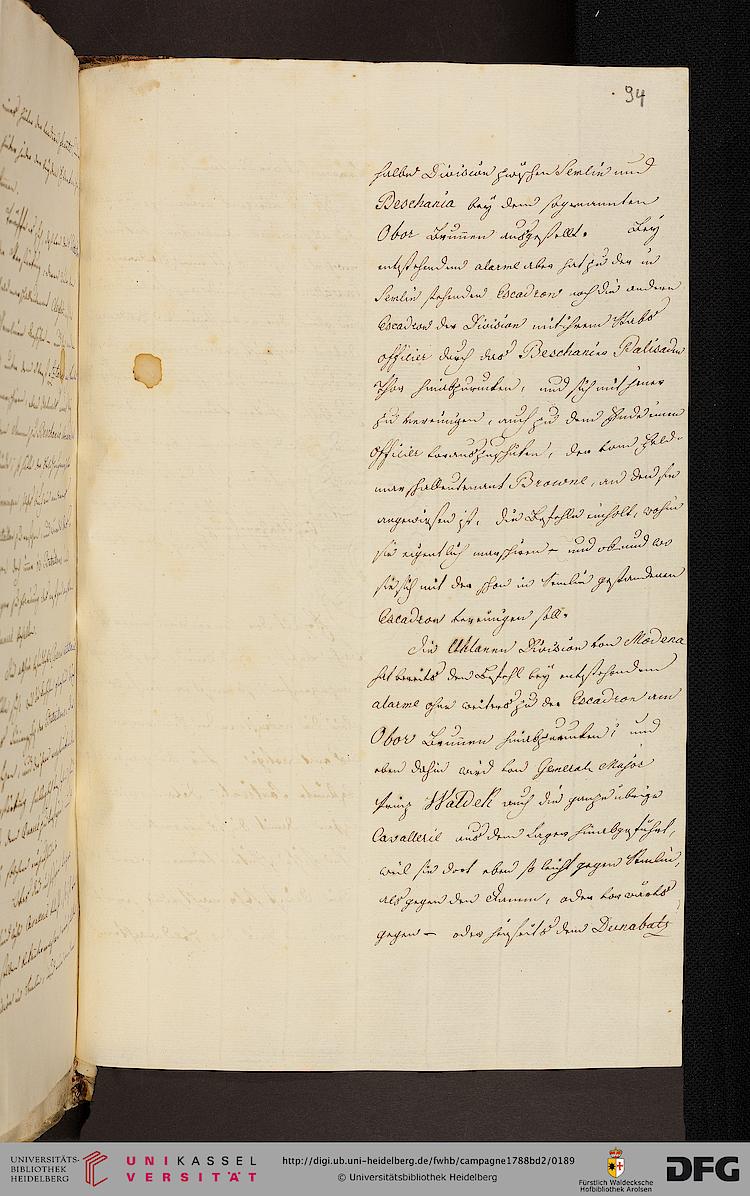 94
halbe Division zwischen Semlin und
Beschania bey dem sogenannten
Obor Brunnen ausgestellt. Bey
entstehendem alarme aber hat zu der in
Semlin stehenden Escadron noch die andere
Escadron der Division mit ihrem Stabs
officier durch das Beschanier Palisaden
Thor hinabzurucken, und sich mit jener
zu vereinigen, auch zu dem Ende einen
Officier vorauszuschiken, der vom Feld-
marschallieutenant Browne, an den sie
angewiesen ist, die Befehle einholt, wohin
sie eigentlich marschiren – und ob und wo
sie sich mit der schon in Semlin gestandenen
Escadron vereinigen soll.
Die Uhlanen Division von Modena
hat bereits den Befehl bey entstehendem
alarme ohne weiters zu der Escadron am
Obor Brunnen hinabzurucken; und
eben dahin wird von General Major
Prinz Waldek auch die ganze übrige
Cavallerie aus dem Lager hinabgeführt,
weil sie dort eben so leicht gegen Semlin,
als gegen den Damm, oder vorwärts
gegen – oder jenseits dem Dunabatz
UNIVERSITÄTS-
BIBLIOTHEK
HEIDELBERG
UNIKASSEL
VERSITÄT
http://digi.ub.uni-heidelberg.de/fwhb/campagne1788bd2/0189
© Universitätsbibliothek Heidelberg
Fürstlich Waldecksche
Hofbibliothek Arolsen
DFG